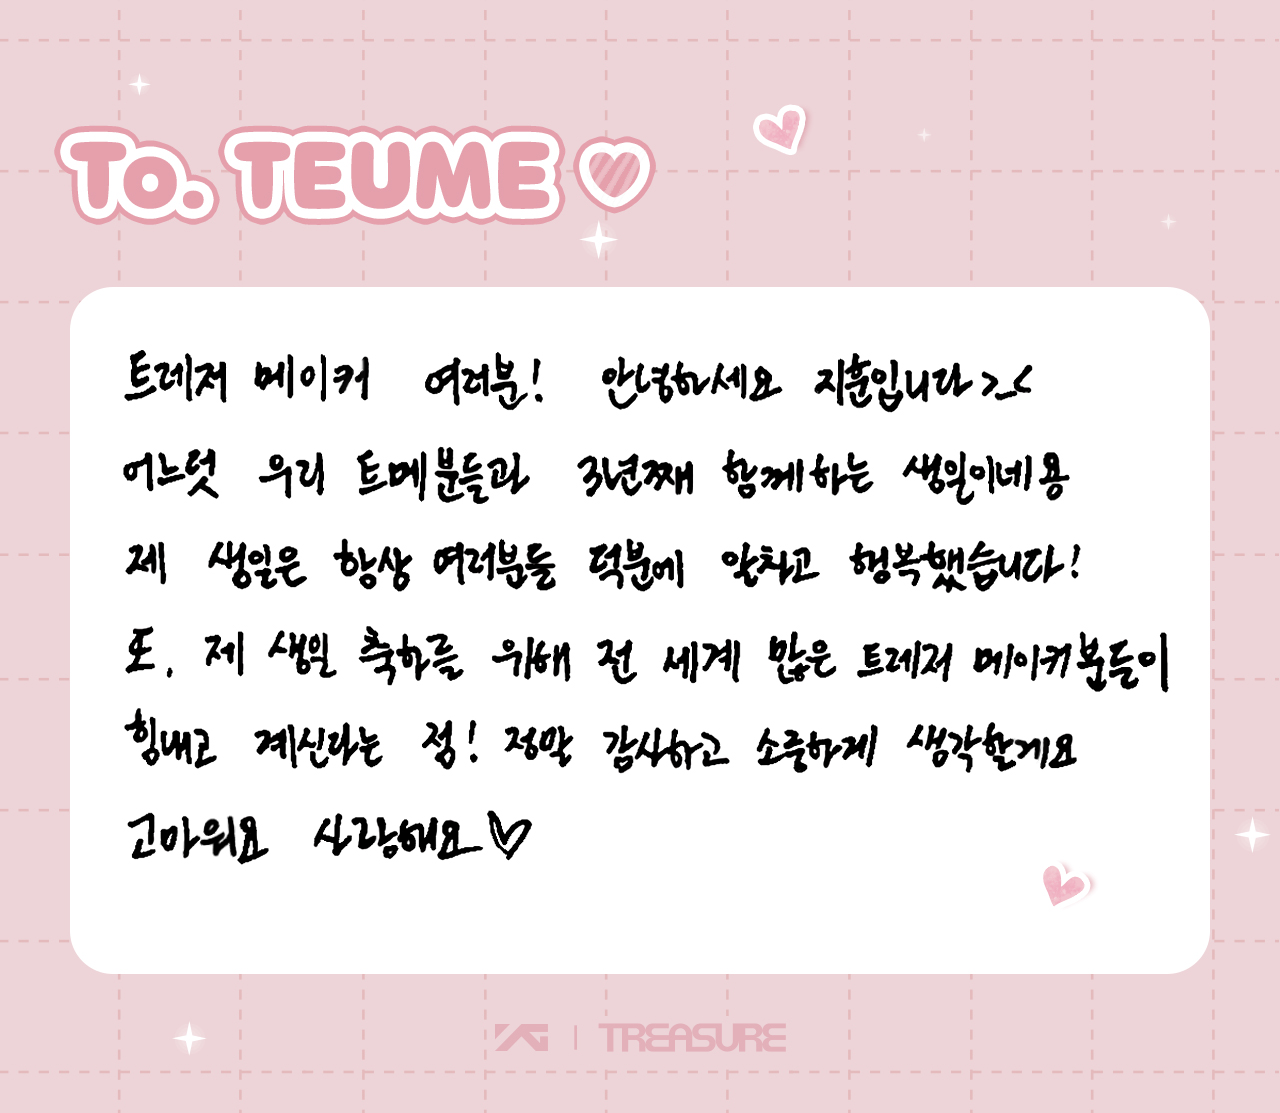 To. TEUME
트레저 메이커 여러분! 안녕하세요 지훈입니다 >_<
어느덧 우리 트메분들과 3년째 함께하는 생일이네용
제 생일은 항상 여러분들 덕분에 알차고 행복했습니다!
또, 제 생일 축하를 위해 전 세계 많은 트레저 메이커분들이
힘내고 계신다는 점! 정말 감사하고 소중하게 생각할게요
고마워요 사랑해요♡
YG | TREASURE